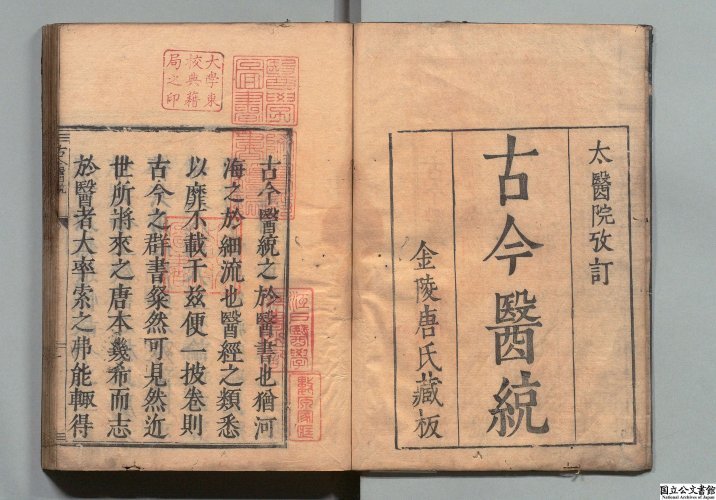 太醫院攷訂
古今醫統
金陵唐氏藏板
古今醫統之於醫書也猶河
海之於細流也醫經之類悉
以靡不載于玆便一披卷則
古今之群書粲然可見然近
世所將來之唐本幾希而志
於醫者大率索之弗能輙得
大學東
校典籍
局之印
古今醫統
國立公文書館
National Archives of Japan